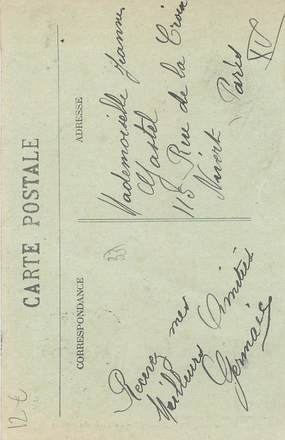 CARTE POSTALE
CORRESPONDANCE
ADRESSE
Recevez mes
Meilleures Amitiés
Germaine
Mademoiselle Jeanne
115 Rue de la Croix
Nivert Paris
XV
33
12 €